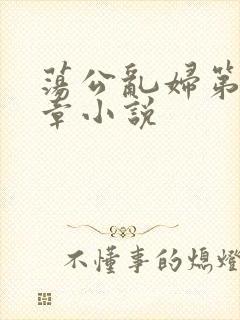 蕩公亂婦第
章小說
不懂事的熄燈